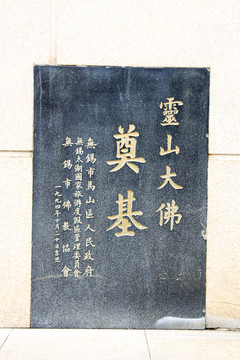 靈山大佛
奠基
無錫市馬山區人民政府
無錫太湖國家旅游度假區管理委員會
無錫市佛教協會
一九九四年十月二十日吉旦